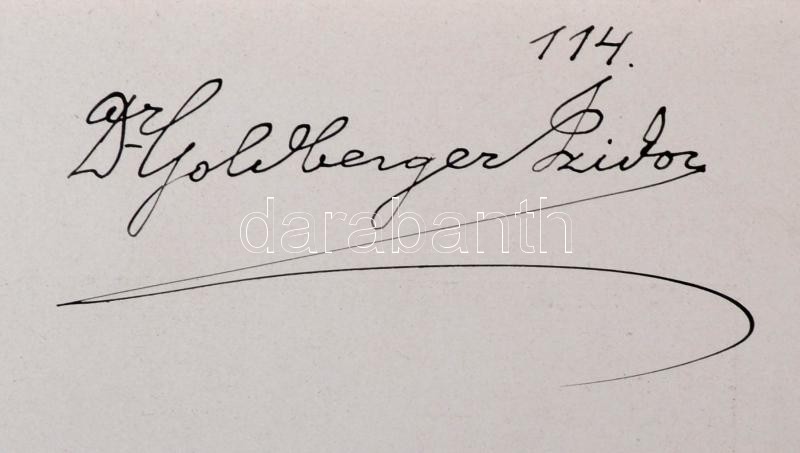 114.
Dr Goldberger Izidor
darabanth